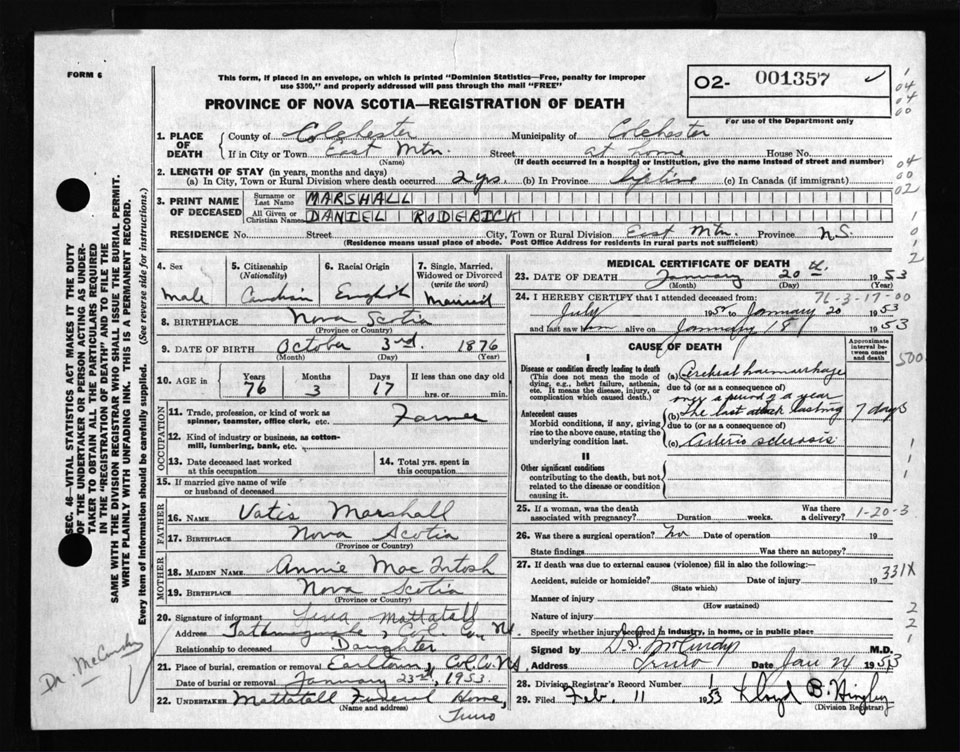 FORM 6
This form, if placed in an envelope, on which is printed "Dominion Statistics—Free, penalty for improper
use $300," and properly addressed will pass through the mail "FREE"
O2- 001357
PROVINCE OF NOVA SCOTIA—REGISTRATION OF DEATH
For use of the Department only
1. PLACE OF DEATH County of Colchester Municipality of Colchester
If in City or Town East Mtn. Street at home House No.
(Name) (If death occurred in a hospital or institution, give the name instead of street and number)
2. LENGTH OF STAY (in years, months and days)
(a) In City, Town or Rural Division where death occurred 2 yrs. (b) In Province lifetime (c) In Canada (if immigrant)
3. PRINT NAME OF DECEASED Surname or Last Name MARSHALL
All Given or Christian Names DANIEL RODERICK
RESIDENCE No. Street City, Town or Rural Division East Mtn. Province N.S.
(Residence means usual place of abode. Post Office Address for residents in rural parts not sufficient)
4. Sex Male
5. Citizenship (Nationality) Canadian
6. Racial Origin English
7. Single, Married, Widowed or Divorced (write the word) Married
8. BIRTHPLACE Nova Scotia
(Province or Country)
9. DATE OF BIRTH October 3rd. 1876
(Month) (Day) (Year)
10. AGE in Years 76 Months 3 Days 17 If less than one day old hrs. or min.
OCCUPATION
11. Trade, profession, or kind of work as spinner, teamster, office clerk, etc. Farmer
12. Kind of industry or business, as cotton-mill, lumbering, bank, etc.
13. Date deceased last worked at this occupation
14. Total yrs. spent in this occupation
15. If married give name of wife or husband of deceased
FATHER
16. NAME Vatis Marshall
17. BIRTHPLACE Nova Scotia
(Province or Country)
MOTHER
18. MAIDEN NAME Annie Mac Intosh
19. BIRTHPLACE Nova Scotia
(Province or Country)
20. Signature of informant Mattatall
Address Tatamagouche, Col. Co. N.S.
Relationship to deceased Daughter
21. Place of burial, cremation or removal Earltown, Col. Co. N.S.
Date of burial or removal January 23rd, 1953.
22. UNDERTAKER Mattatall Funeral Home,
(Name and address) Truro
MEDICAL CERTIFICATE OF DEATH
23. DATE OF DEATH January 20th. 1953
(Month) (Day) (Year)
24. I HEREBY CERTIFY that I attended deceased from: 76-3-17-00
July 1952 to January 20 1953
and last saw him alive on January 18 1953
CAUSE OF DEATH
Approximate interval between onset and death
I
Disease or condition directly leading to death
(This does not mean the mode of dying, e.g., heart failure, asthenia, etc. It means the disease, injury, or complication which caused death.)
(a) Cerebral haemorrhage
due to (or as a consequence of)
over a period of a year
Antecedent causes
Morbid conditions, if any, giving rise to the above cause, stating the underlying condition last.
(b) The last attack lasting 7 days
due to (or as a consequence of)
(c) Arterio sclerosis
II
Other significant conditions
contributing to the death, but not related to the disease or condition causing it.
25. If a woman, was the death associated with pregnancy? Duration weeks. Was there a delivery? 1-20-3
26. Was there surgical operation? No Date of operation 19
State findings Was there an autopsy?
27. If death was due to external causes (violence) fill in also the following:—
331X
Accident, suicide or homicide? Date of injury 19
(State which)
Manner of injury
(How sustained)
Nature of injury
Specify whether injury occurred in industry, in home, or in public place
Signed by D.S. McCurdy M.D.
Address Truro Date Jan 24 1953
28. Division Registrar's Record Number 1
29. Filed Feb. 11 1953 Lloyd B.
(Division Registrar)
SEC. 46—VITAL STATISTICS ACT MAKES IT THE DUTY
OF THE UNDERTAKER OR PERSON ACTING AS UNDER-
TAKER TO OBTAIN ALL THE PARTICULARS REQUIRED
IN THE "REGISTRATION OF DEATH" AND TO FILE THE
SAME WITH THE DIVISION REGISTRAR WHO SHALL ISSUE THE BURIAL PERMIT.
WRITE PLAINLY WITH UNFADING INK. THIS IS A PERMANENT RECORD.
Every item of information should be carefully supplied. (See reverse side for instructions.)
Dr. McCurdy
1
04
04
00
04
00
02
1
0
1
2
500
1
1
1
2
2
1